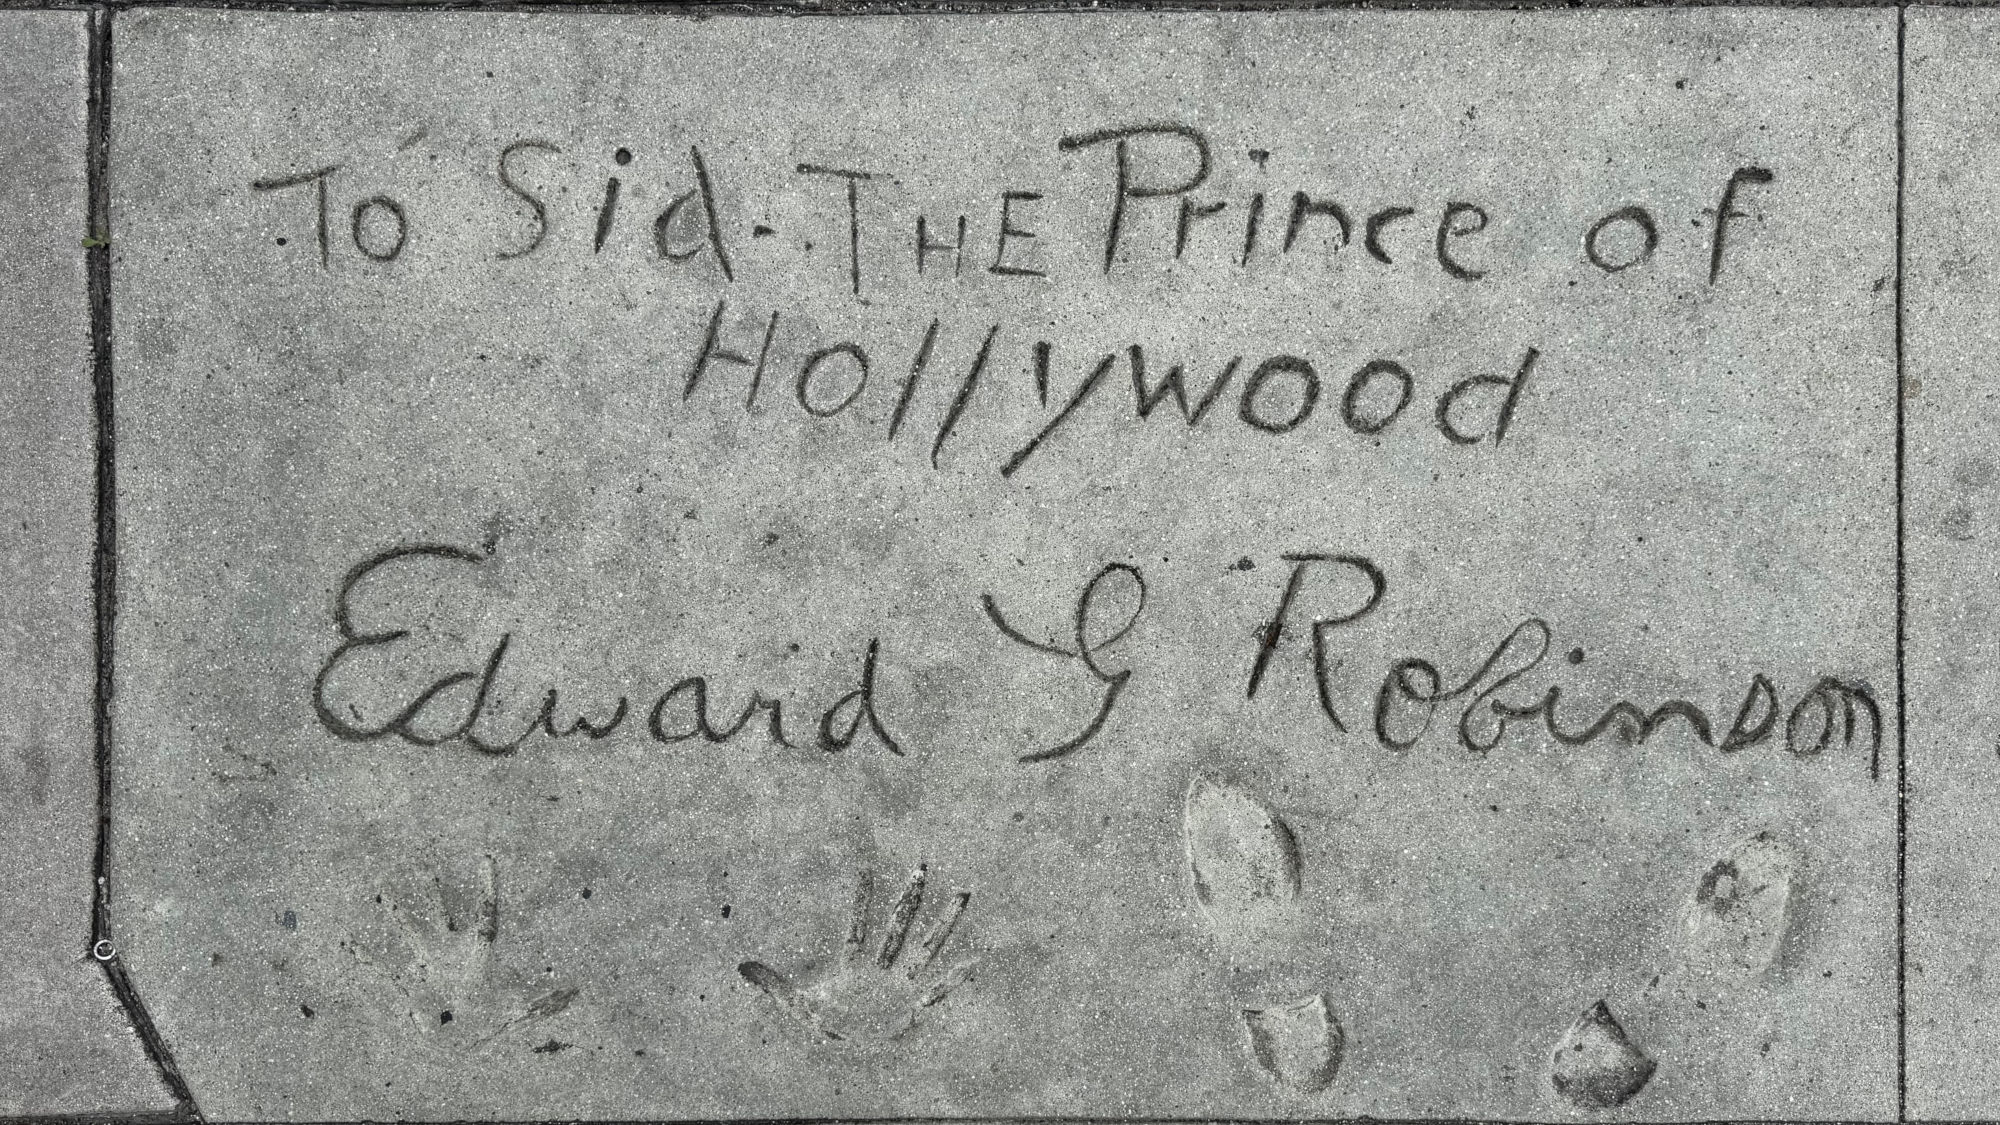 To Sid - THE Prince of
Hollywood
Edward G Robinson